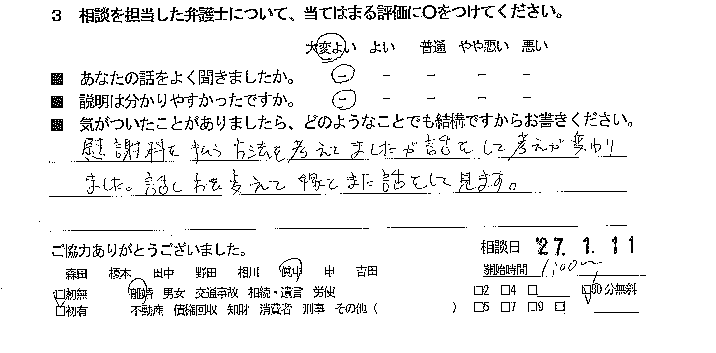 3 相談を担当した弁護士について、当てはまる評価に○をつけてください。
大変よい よい 普通 やや悪い 悪い
■ あなたの話をよく聞きましたか。 － － － － －
■ 説明は分かりやすかったですか。 － － － － －
■ 気がついたことがありましたら、どのようなことでも結構ですからお書きください。
慰謝料を払う方法を考えてましたが話をして考えが変わり
ました。話し方を考えて嫁とまた話をして見ます。
ご協力ありがとうございました。
相談日 '27. 1. 11
森田 榎本 田中 野田 相川 申 吉田
開始時間 1:00〜
□初無 離婚 男女 交通事故 相続・遺言 労使
□2 □4 □ □30分無料
□初有 不動産 債権回収 知財 消費者 刑事 その他 ( )
□5 □7 □9 □